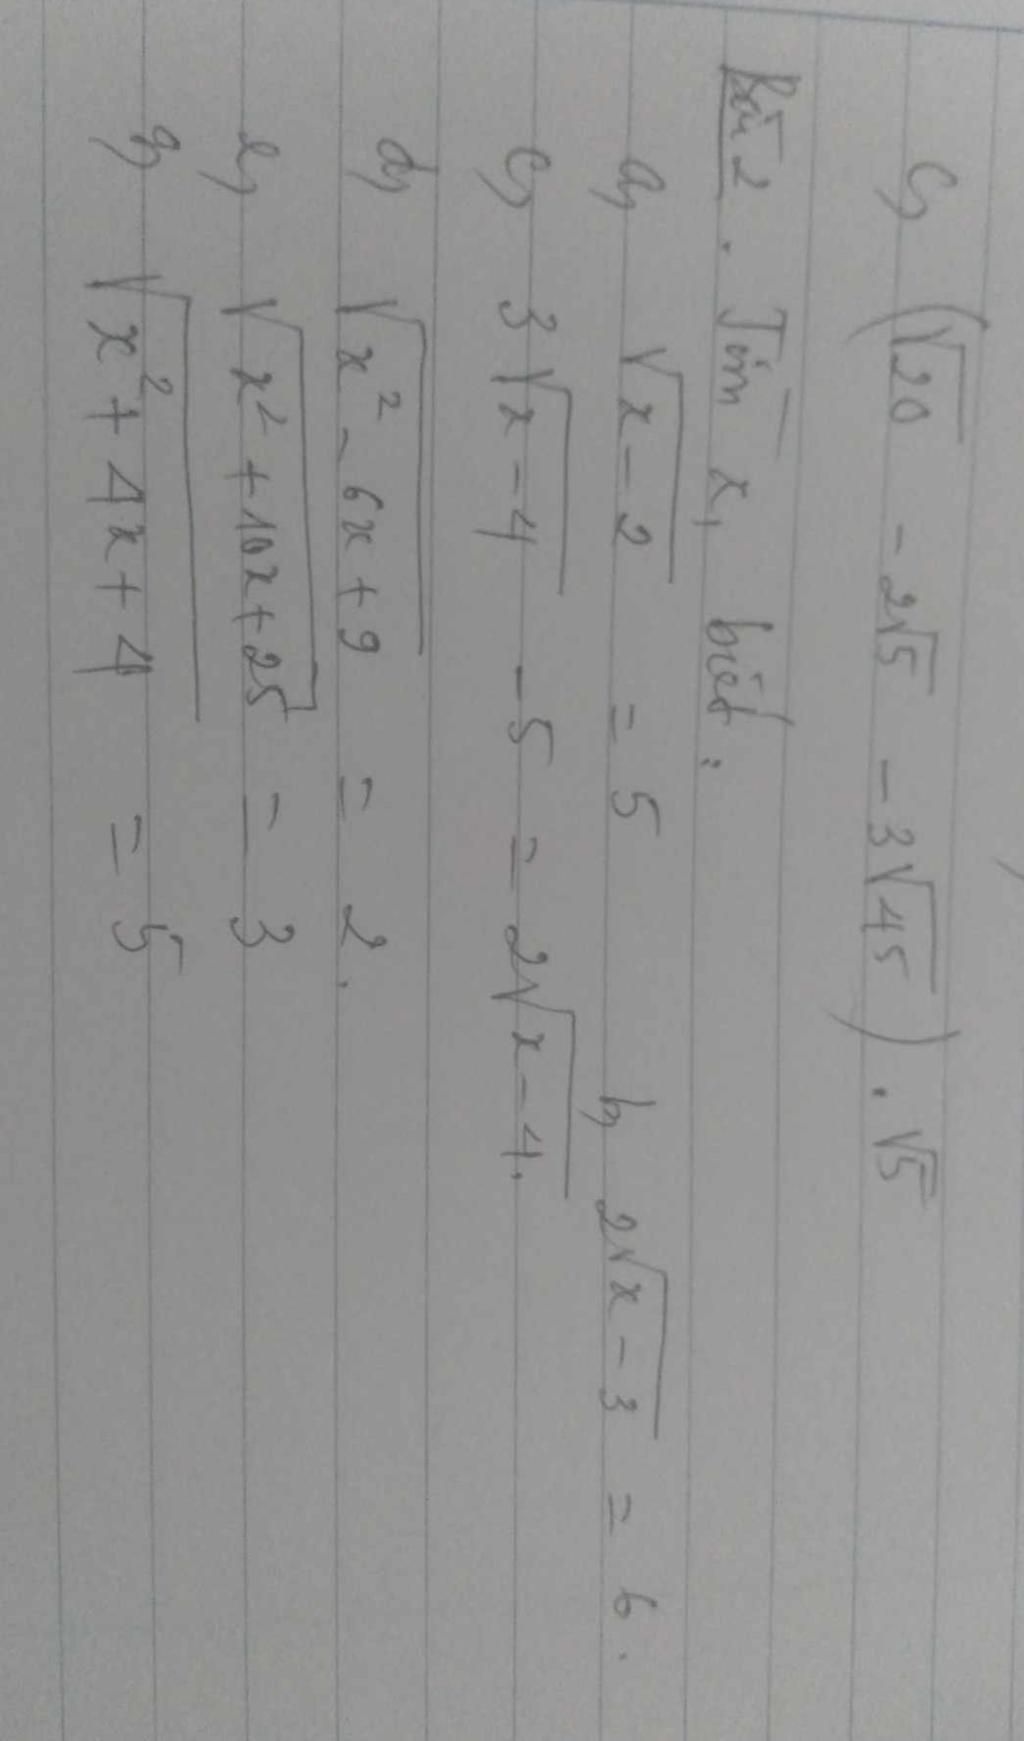 c, (√20 - 2√5 - 3√45) . √5
Bài 2. Tìm x, biết:
a, √(x-2) = 5 b, 2√(x-3) = 6.
c, 3√(x-4) - 5 = 2√(x-4).
d, √(x² - 6x + 9) = 2.
e, √(x² + 10x + 25) = 3
g, √(x² + 4x + 4) = 5